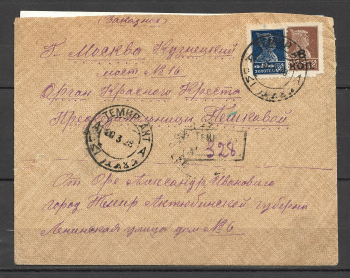 (Заказное)
Г. Москва Кузнецкий
мост № 16
Орган Красного Креста
Пешковой
ТЕМИР АКТ
328
От Александр Ивановича
город Темир Актюбинской губернии
Ленинская улица дом № 6